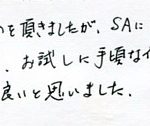 を頂きましたが、SAに
、お試しに手頃な
良いと思いました。